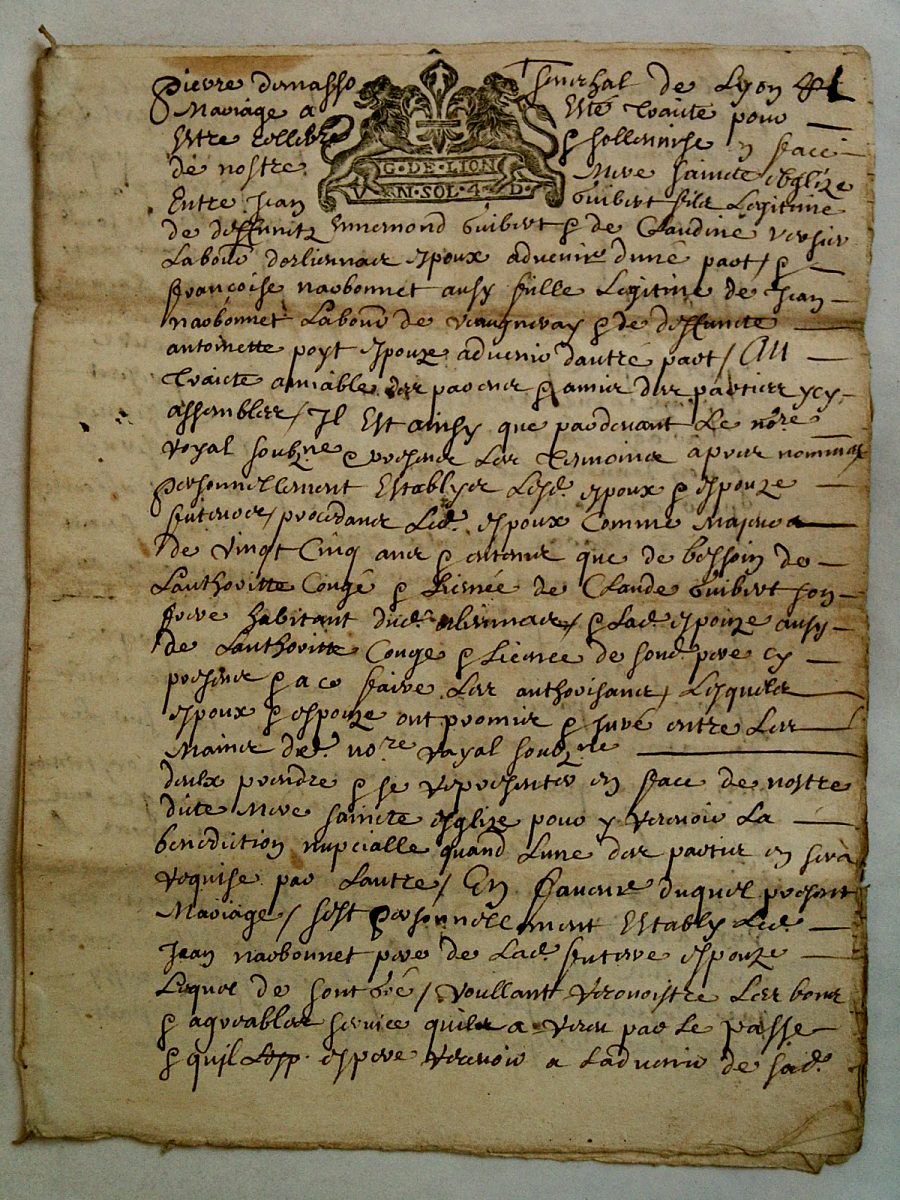 Pierre dumasso Senechal de Lyon
Mariage a Esté Traicté pour
Estre cellebré & sollennisé en face
de nostre Mere saincte Eglize
G·DE·LION
V·EN·SOL·4·D·
Entre Jean Guibert filz Legitime
de deffunctz Ennemond Guibert & de Claudine versier
Labour d'orliennas espoux advenir d'une part / &
françoise narbonnet ausy fille Legitime de Jean
narbonnet Labour de vaugneray & de deffuncte
antoinette poyt espouze advenir dautre part / Au
Traicte amiable des parens & amis des parties ycy
assembles / Il Est ainsy que pardevant Le nore
royal soubzne & presence des Tesmoins apres nommes
personnellement Establyes Lesd. espoux & espouze
futeures / procedant Led. espoux Comme Majeur
de vingt Cinq ans & autant que de besoin de
Lauthoritte Congé & Licence de Claude Guibert son
frere habitant dud. orliennas / & Lad. espouze ausy
de Lauthoritte Conge & Licence de sond. pere cy
present & a ce faire Les authorisant / Lesquels
espoux & espouze ont promis & juré entre Les
Mains dud. nore royal soubzne
deulx prendre & se representer en face de nostre
dicte Mere saincte esglize pour y recevoir La
benediction nupcialle quand Lune des parties en sera
requise par Lautre / En faveur duquel present
Mariage / sest personnellement Estably Led.
Jean narbonnet pere de Lad. future espouze
Lequel de sont Gré / voullant recognoistre Les bons
& agreables service quil a receu par Le passe
& quil espere recevoir a Ladvenir de sad.